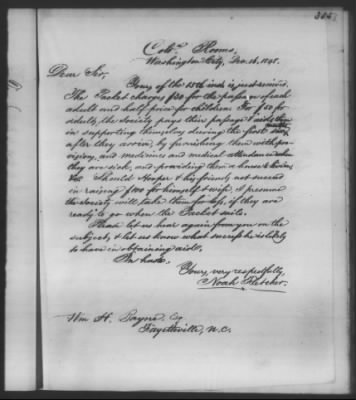 Coln. Rooms,
Washington City, Dec. 16, 1848.
Dear Sir,
Yours of the 13th inst. is just received.
The Packet charges $30 for the passage of each
adult and half price for children. For $50 for
adults, the society pays their passage & aids them
in supporting themselves during the first six months
after they arrive, by furnishing them with pro-
vision, and medicines and medical attendance when
they are sick, and providing them in houses
&c. Should Hooper & his friends not succeed
in raising $100 for himself & wife, I presume
the Society will take them for less, if they are
ready to go when the Packet sails.
Please let us hear again from you on the
subject, & let us know what success he is likely
to have in obtaining aid.
In haste,
Yours, very respectfully,
Noah Fletcher.
Wm H. Bayne, Esq
Fayetteville, N.C.